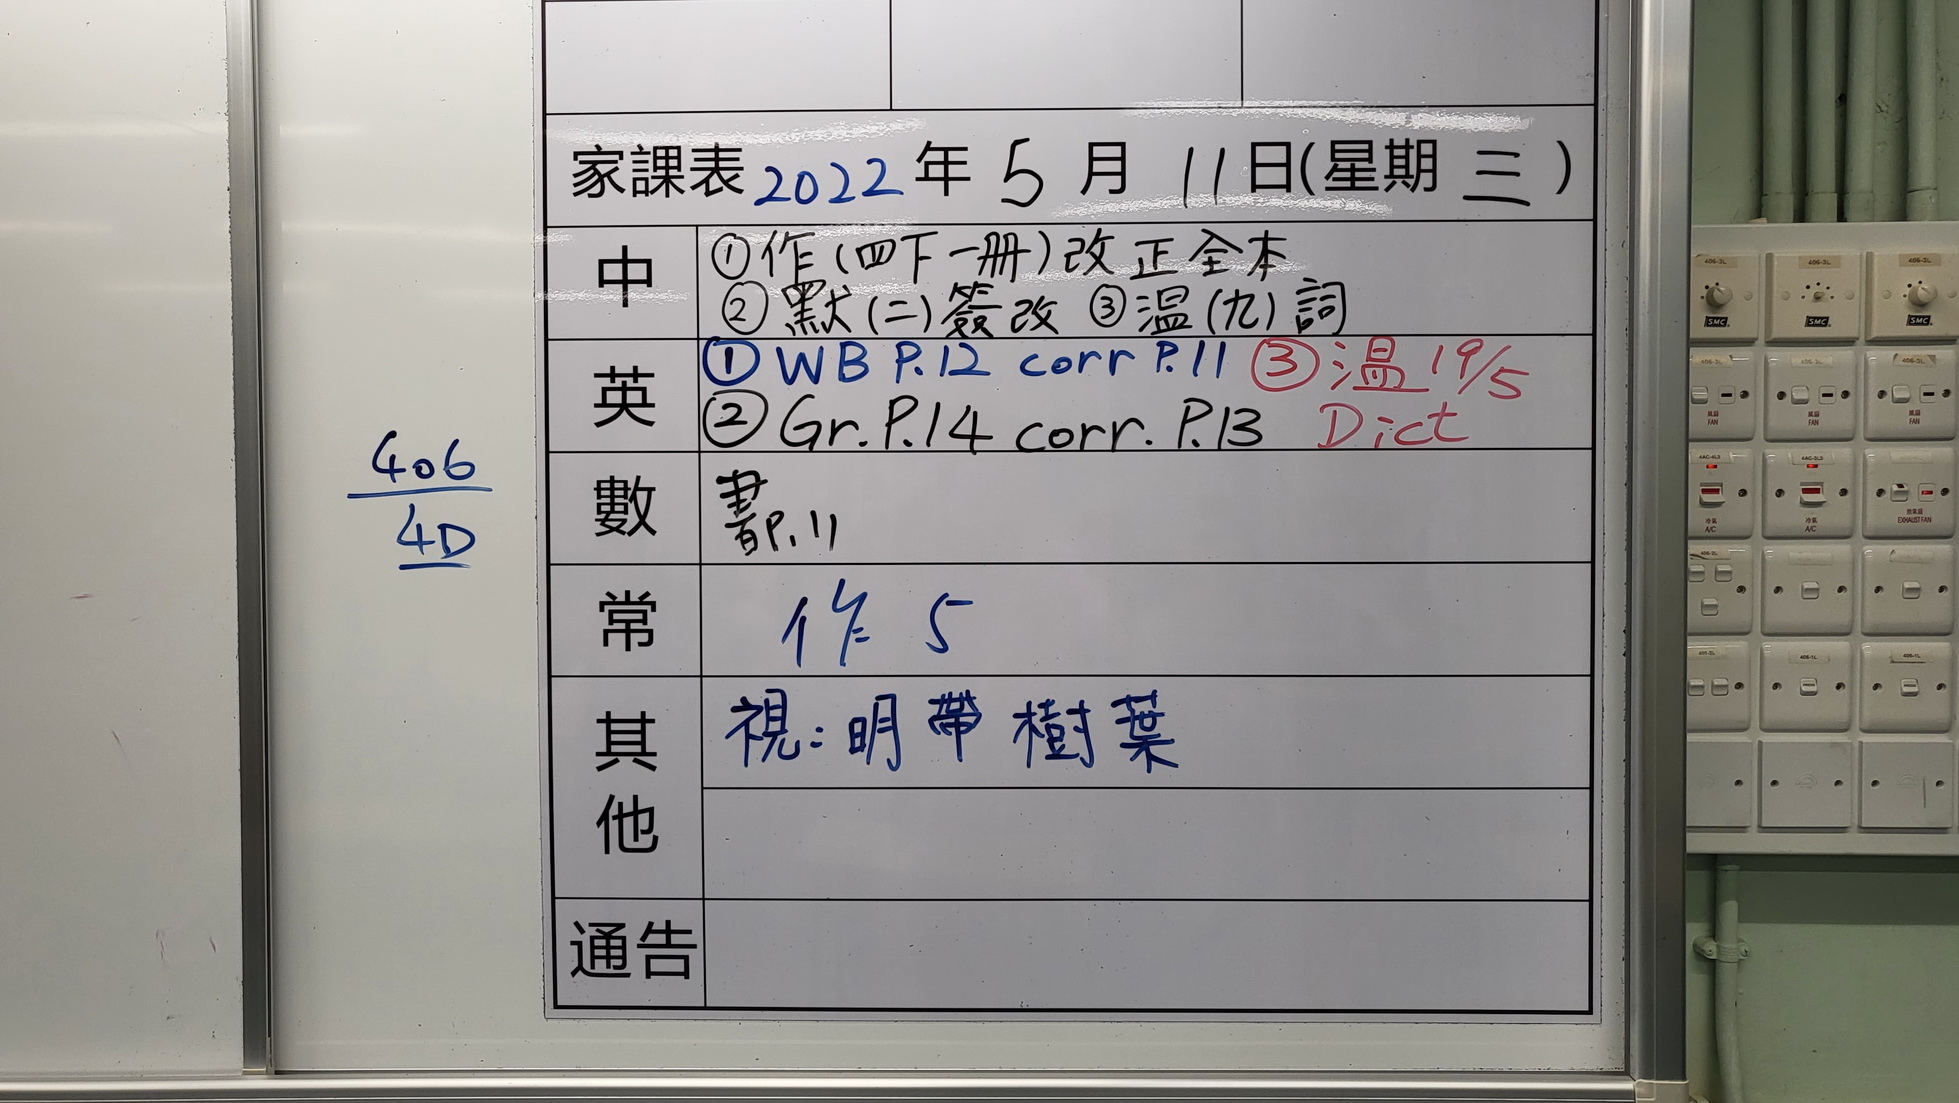 家課表 2022 年 5 月 11 日(星期 三 )
中
①作(四下一冊)改正全本
②默(二)簽改 ③溫(九)詞
英
①WB P.12 corr P.11 ③溫 19/5
②Gr. P.14 corr. P.13 Dict
數
書P.11
常
作 5
其他
視：明帶樹葉
通告
406
4D
406-3L
406-3L
406-3L
SMC
SMC
SMC
風扇
FAN
風扇
FAN
風扇
FAN
冷氣
A/C
冷氣
A/C
抽氣扇
EXHAUST FAN
406-1L
406-1L